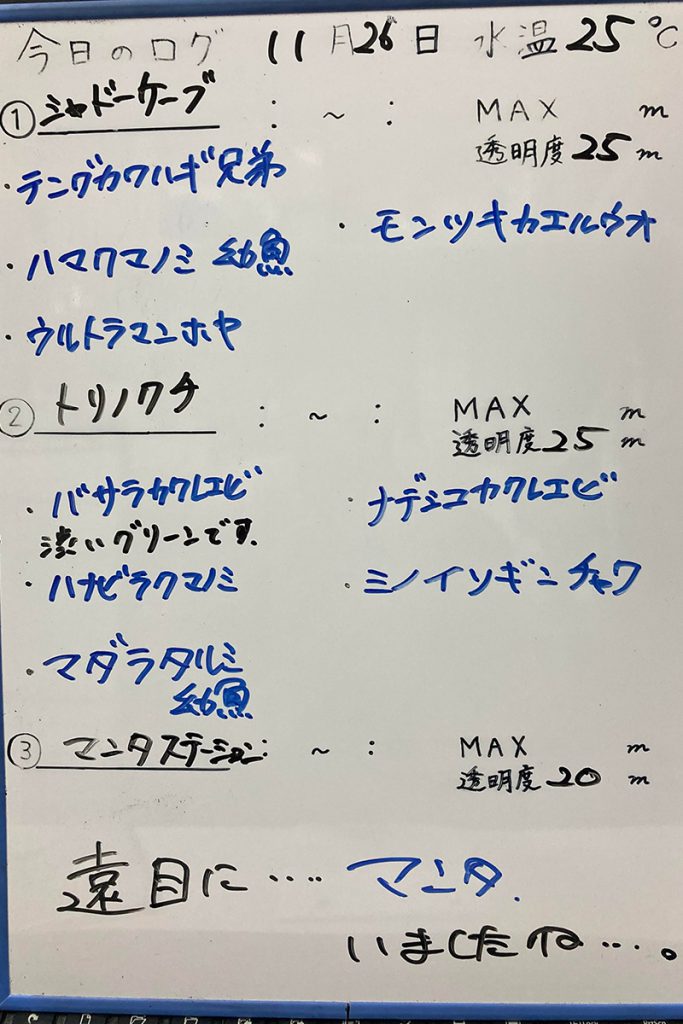 今日のログ 11月26日 水温25℃
①シャドーケーブ : ~ : MAX m
透明度25m
・テングカワハギ兄弟
・モンツキカエルウオ
・ハマクマノミ 幼魚
・ウルトラマンホヤ
②トリノクチ : ~ : MAX m
透明度25m
・バサラカクレエビ
・ナデシコカクレエビ
渋いグリーンです。
・ハナビラクマノミ
・ミノイソギンチャク
・マダラタルミ
幼魚
③マンタステーション: ~ : MAX m
透明度20m
遠目に‥‥マンタ.
いましたね‥‥。